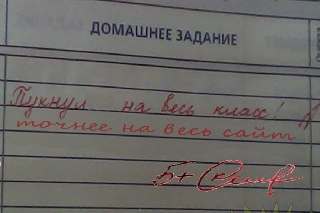 ДОМАШНЕЕ ЗАДАНИЕ
Пукнул на весь класс!
точнее на весь сайт
5+